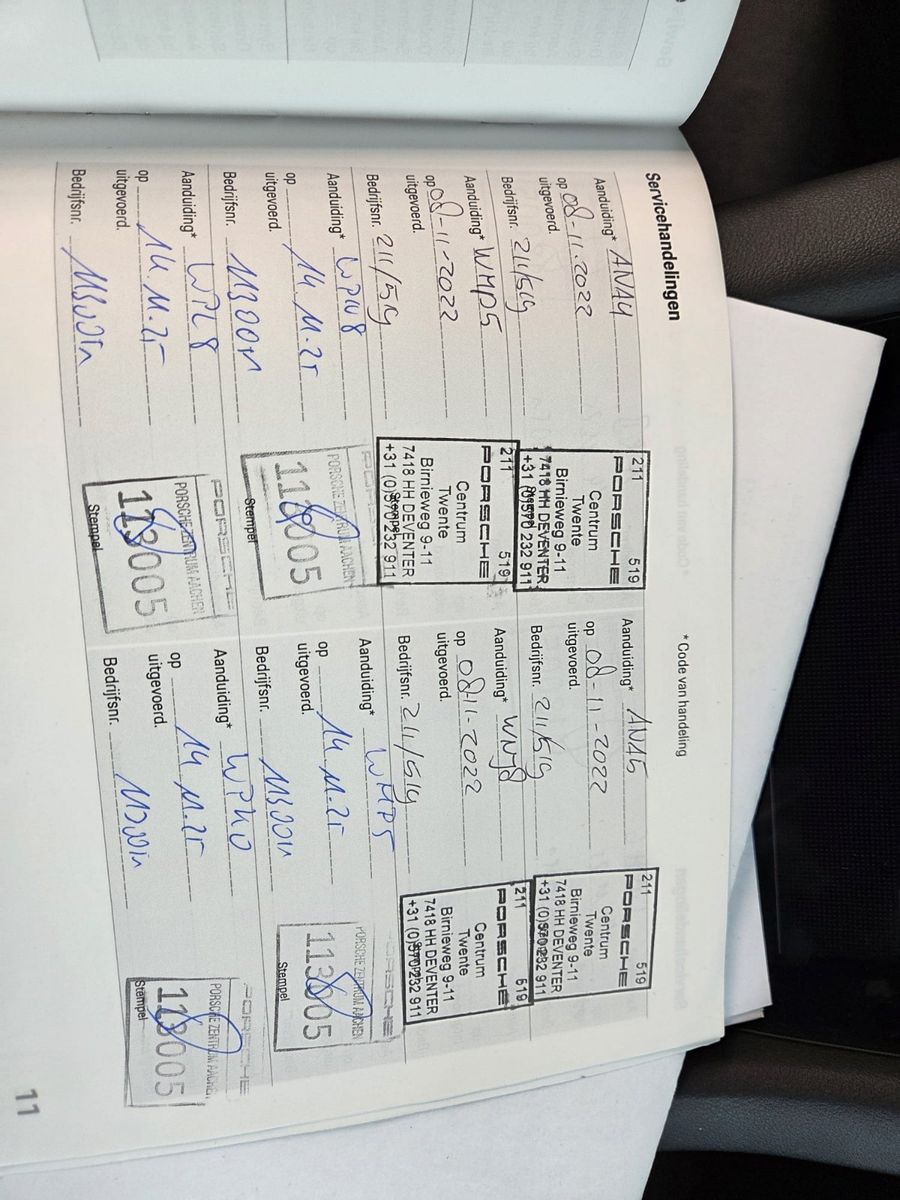 Servicehandelingen
* Code van handeling
Aanduiding* ANA4
op 08-11-2022
uitgevoerd.
Bedrijfsnr. 211/519
211 519
PORSCHE
Centrum
Twente
Birnieweg 9-11
7418 HH DEVENTER
+31 (0)570 232 911
Aanduiding* ANA5
op 08-11-2022
uitgevoerd.
Bedrijfsnr. 211/519
211 519
PORSCHE
Centrum
Twente
Birnieweg 9-11
7418 HH DEVENTER
+31 (0)570 232 911
Aanduiding* WMP5
op 08-11-2022
uitgevoerd.
Bedrijfsnr. 211/519
211 519
PORSCHE
Centrum
Twente
Birnieweg 9-11
7418 HH DEVENTER
+31 (0)570 232 911
Aanduiding*
op 08-11-2022
uitgevoerd.
Bedrijfsnr. 211/519
211 519
PORSCHE
Centrum
Twente
Birnieweg 9-11
7418 HH DEVENTER
+31 (0)570 232 911
Aanduiding*
op 14.11.25
uitgevoerd.
Bedrijfsnr.
PORSCHE
PORSCHE ZENTRUM AACHEN
113005
Stempel
Aanduiding* WMP5
op 14.11.25
uitgevoerd.
Bedrijfsnr.
PORSCHE
PORSCHE ZENTRUM AACHEN
113005
Stempel
Aanduiding*
op 14.11.25
uitgevoerd.
Bedrijfsnr.
PORSCHE
PORSCHE ZENTRUM AACHEN
113005
Stempel
Aanduiding*
op 14.11.25
uitgevoerd.
Bedrijfsnr.
PORSCHE
PORSCHE ZENTRUM AACHEN
113005
Stempel
11